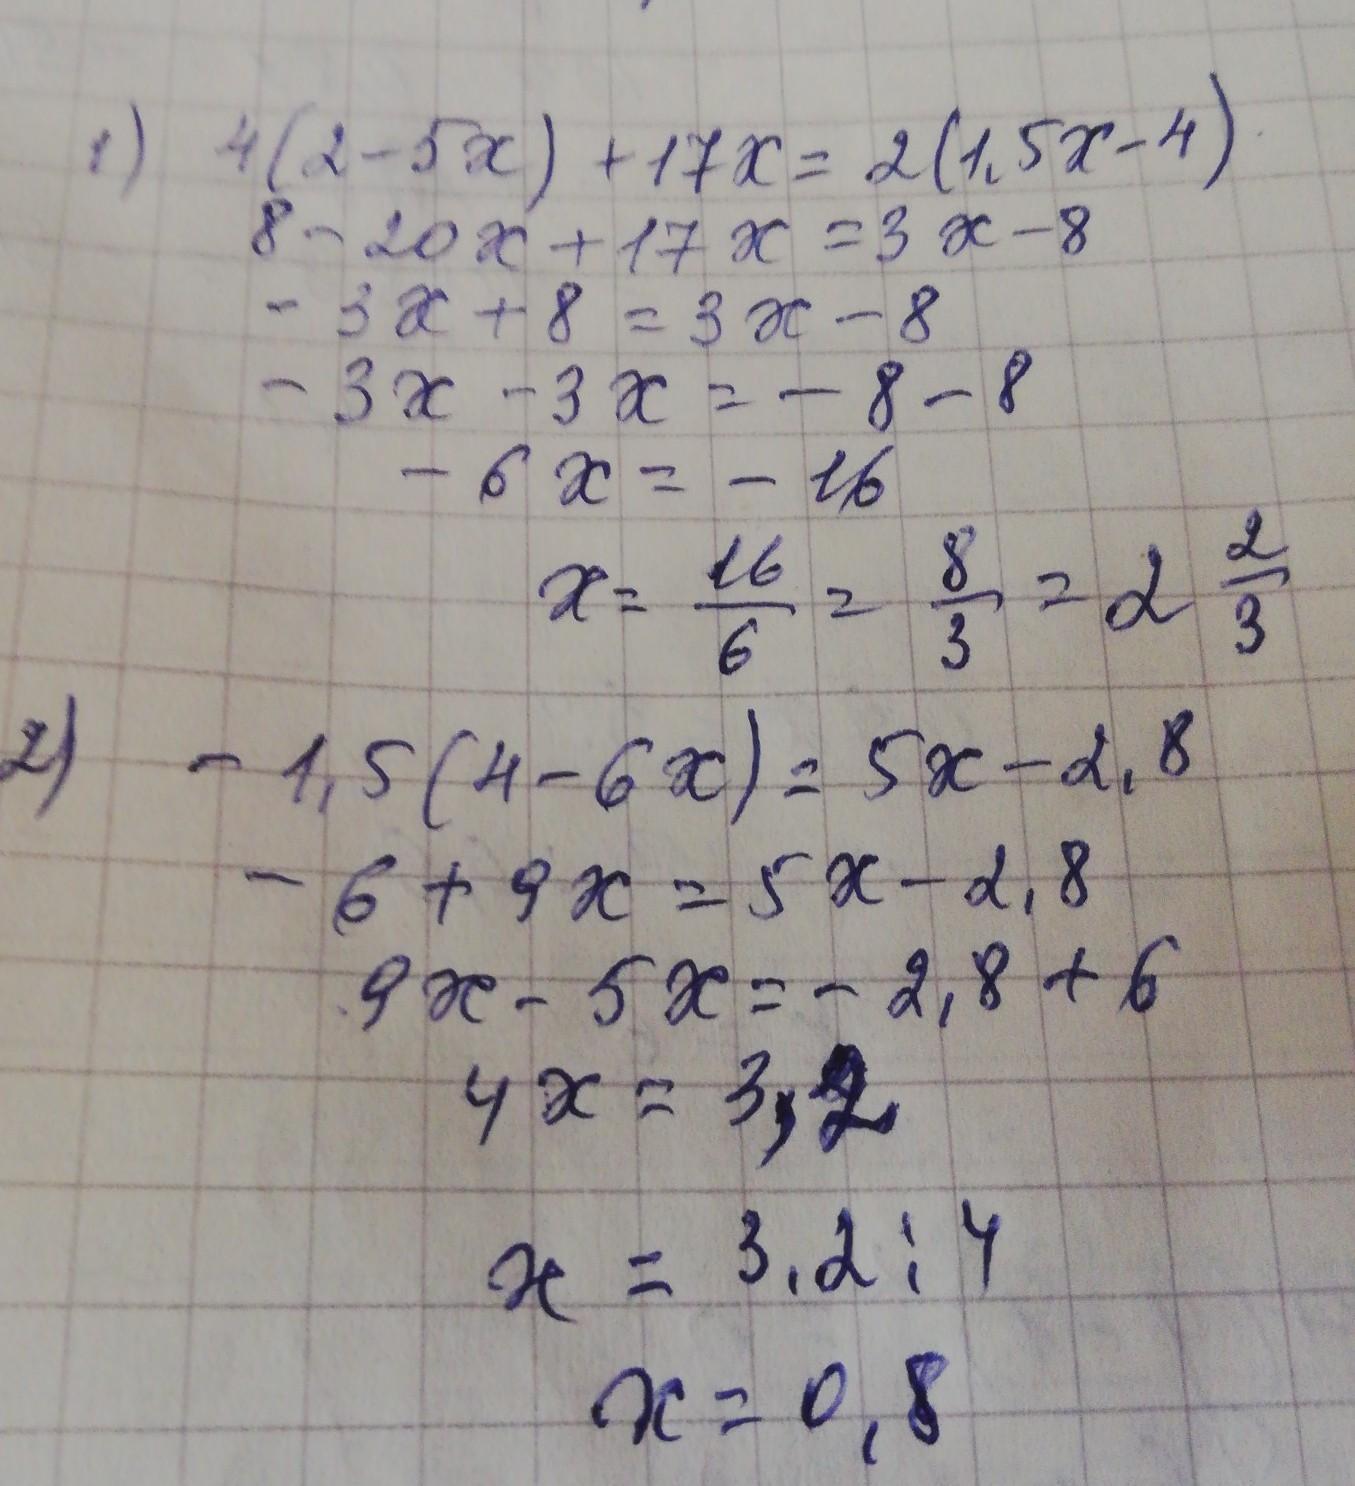 1) 4(2-5x)+17x=2(1,5x-4)
8-20x+17x=3x-8
-3x+8=3x-8
-3x-3x=-8-8
-6x=-16
x=16/6=8/3=2 2/3
2) -1,5(4-6x)=5x-2,8
-6+9x=5x-2,8
9x-5x=-2,8+6
4x=3,2
x=3,2:4
x=0,8